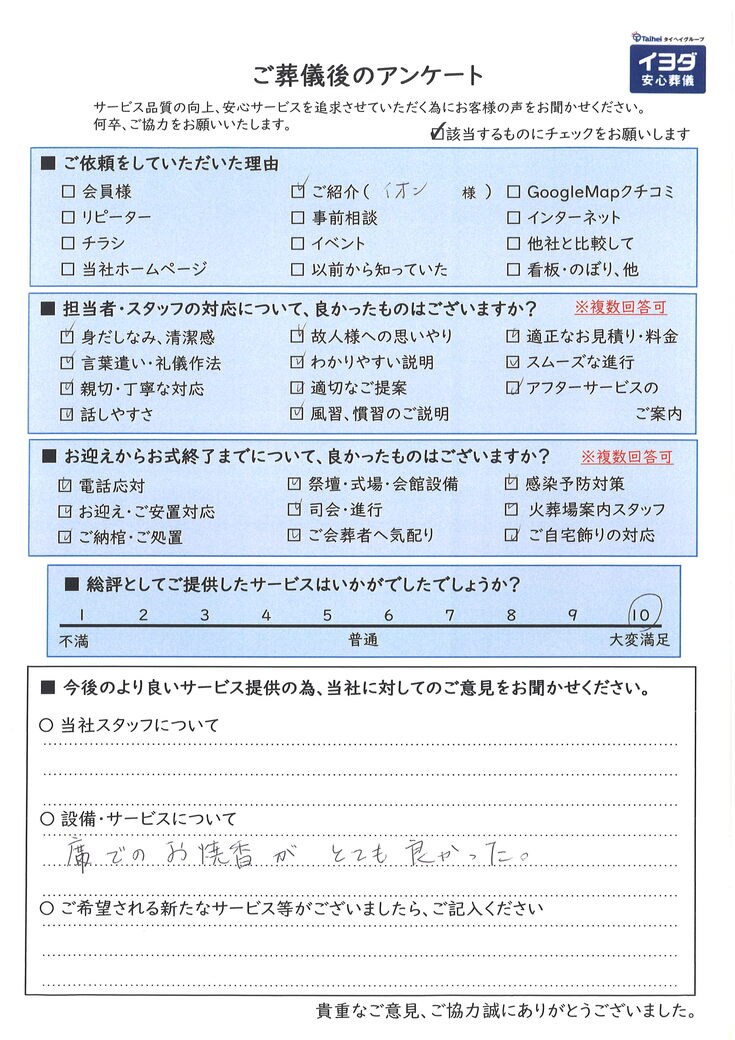 Taihei タイヘイグループ
イヨダ
安心葬儀
ご葬儀後のアンケート
サービス品質の向上、安心サービスを追求させていただく為にお客様の声をお聞かせください。
何卒、ご協力をお願いいたします。
☑該当するものにチェックをお願いします
■ ご依頼をしていただいた理由
□ 会員様 ☑ ご紹介( イオン 様 ) □ GoogleMapクチコミ
□ リピーター □ 事前相談 □ インターネット
□ チラシ □ イベント □ 他社と比較して
□ 当社ホームページ □ 以前から知っていた □ 看板・のぼり、他
■ 担当者・スタッフの対応について、良かったものはございますか? ※複数回答可
☑ 身だしなみ、清潔感 ☑ 故人様への思いやり ☑ 適正なお見積り・料金
☑ 言葉遣い・礼儀作法 ☑ わかりやすい説明 ☑ スムーズな進行
☑ 親切・丁寧な対応 ☑ 適切なご提案 ☑ アフターサービスの
☑ 話しやすさ ☑ 風習、慣習のご説明 ご案内
■ お迎えからお式終了までについて、良かったものはございますか? ※複数回答可
☑ 電話応対 ☑ 祭壇・式場・会館設備 ☑ 感染予防対策
☑ お迎え・ご安置対応 ☑ 司会・進行 ☑ 火葬場案内スタッフ
☑ ご納棺・ご処置 ☑ ご会葬者へ気配り ☑ ご自宅飾りの対応
■ 総評としてご提供したサービスはいかがでしたでしょうか?
1 2 3 4 5 6 7 8 9 10
不満 普通 大変満足
■ 今後のより良いサービス提供の為、当社に対してのご意見をお聞かせください。
○ 当社スタッフについて
○ 設備・サービスについて
席でのお焼香が とても良かった。
○ ご希望される新たなサービス等がございましたら、ご記入ください
貴重なご意見、ご協力誠にありがとうございました。